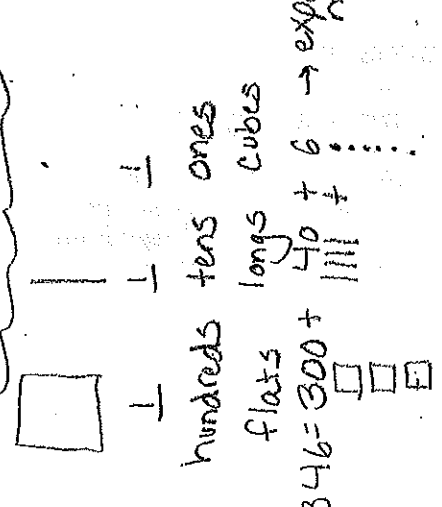 1 1 1
hundreds tens ones
flats longs cubes
346 = 300 + 40 + 6 →
+